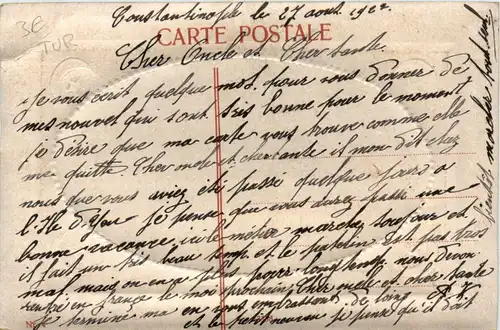 3E
TUR
Constantinople le 27 aout 192
CARTE POSTALE
Cher Oncle et Cher tante
Je vous ecrit quelque mot pour vous donner de
mes nouvel qui sont tres bonne pour le moment
je désire que ma carte vous trouve comme elle
me quitte Cher oncle et cher tante il mon dit chez
nous que vous aviez eté passé quelque jours a
l'Ile d'Yeu Je pense que vous aurez passé une
bonne vacance ici le métier marche toujour et
il fait un très beau temp et le putin est pas tros
mal mais on en a plus pour longtemp nous devon
rentré en france le moi prochain Cher oncle et cher tante
Je termine ma en vous embrassent de loin
et le petit nouveau je pense qu'il doit
bientôt marcher tout seul